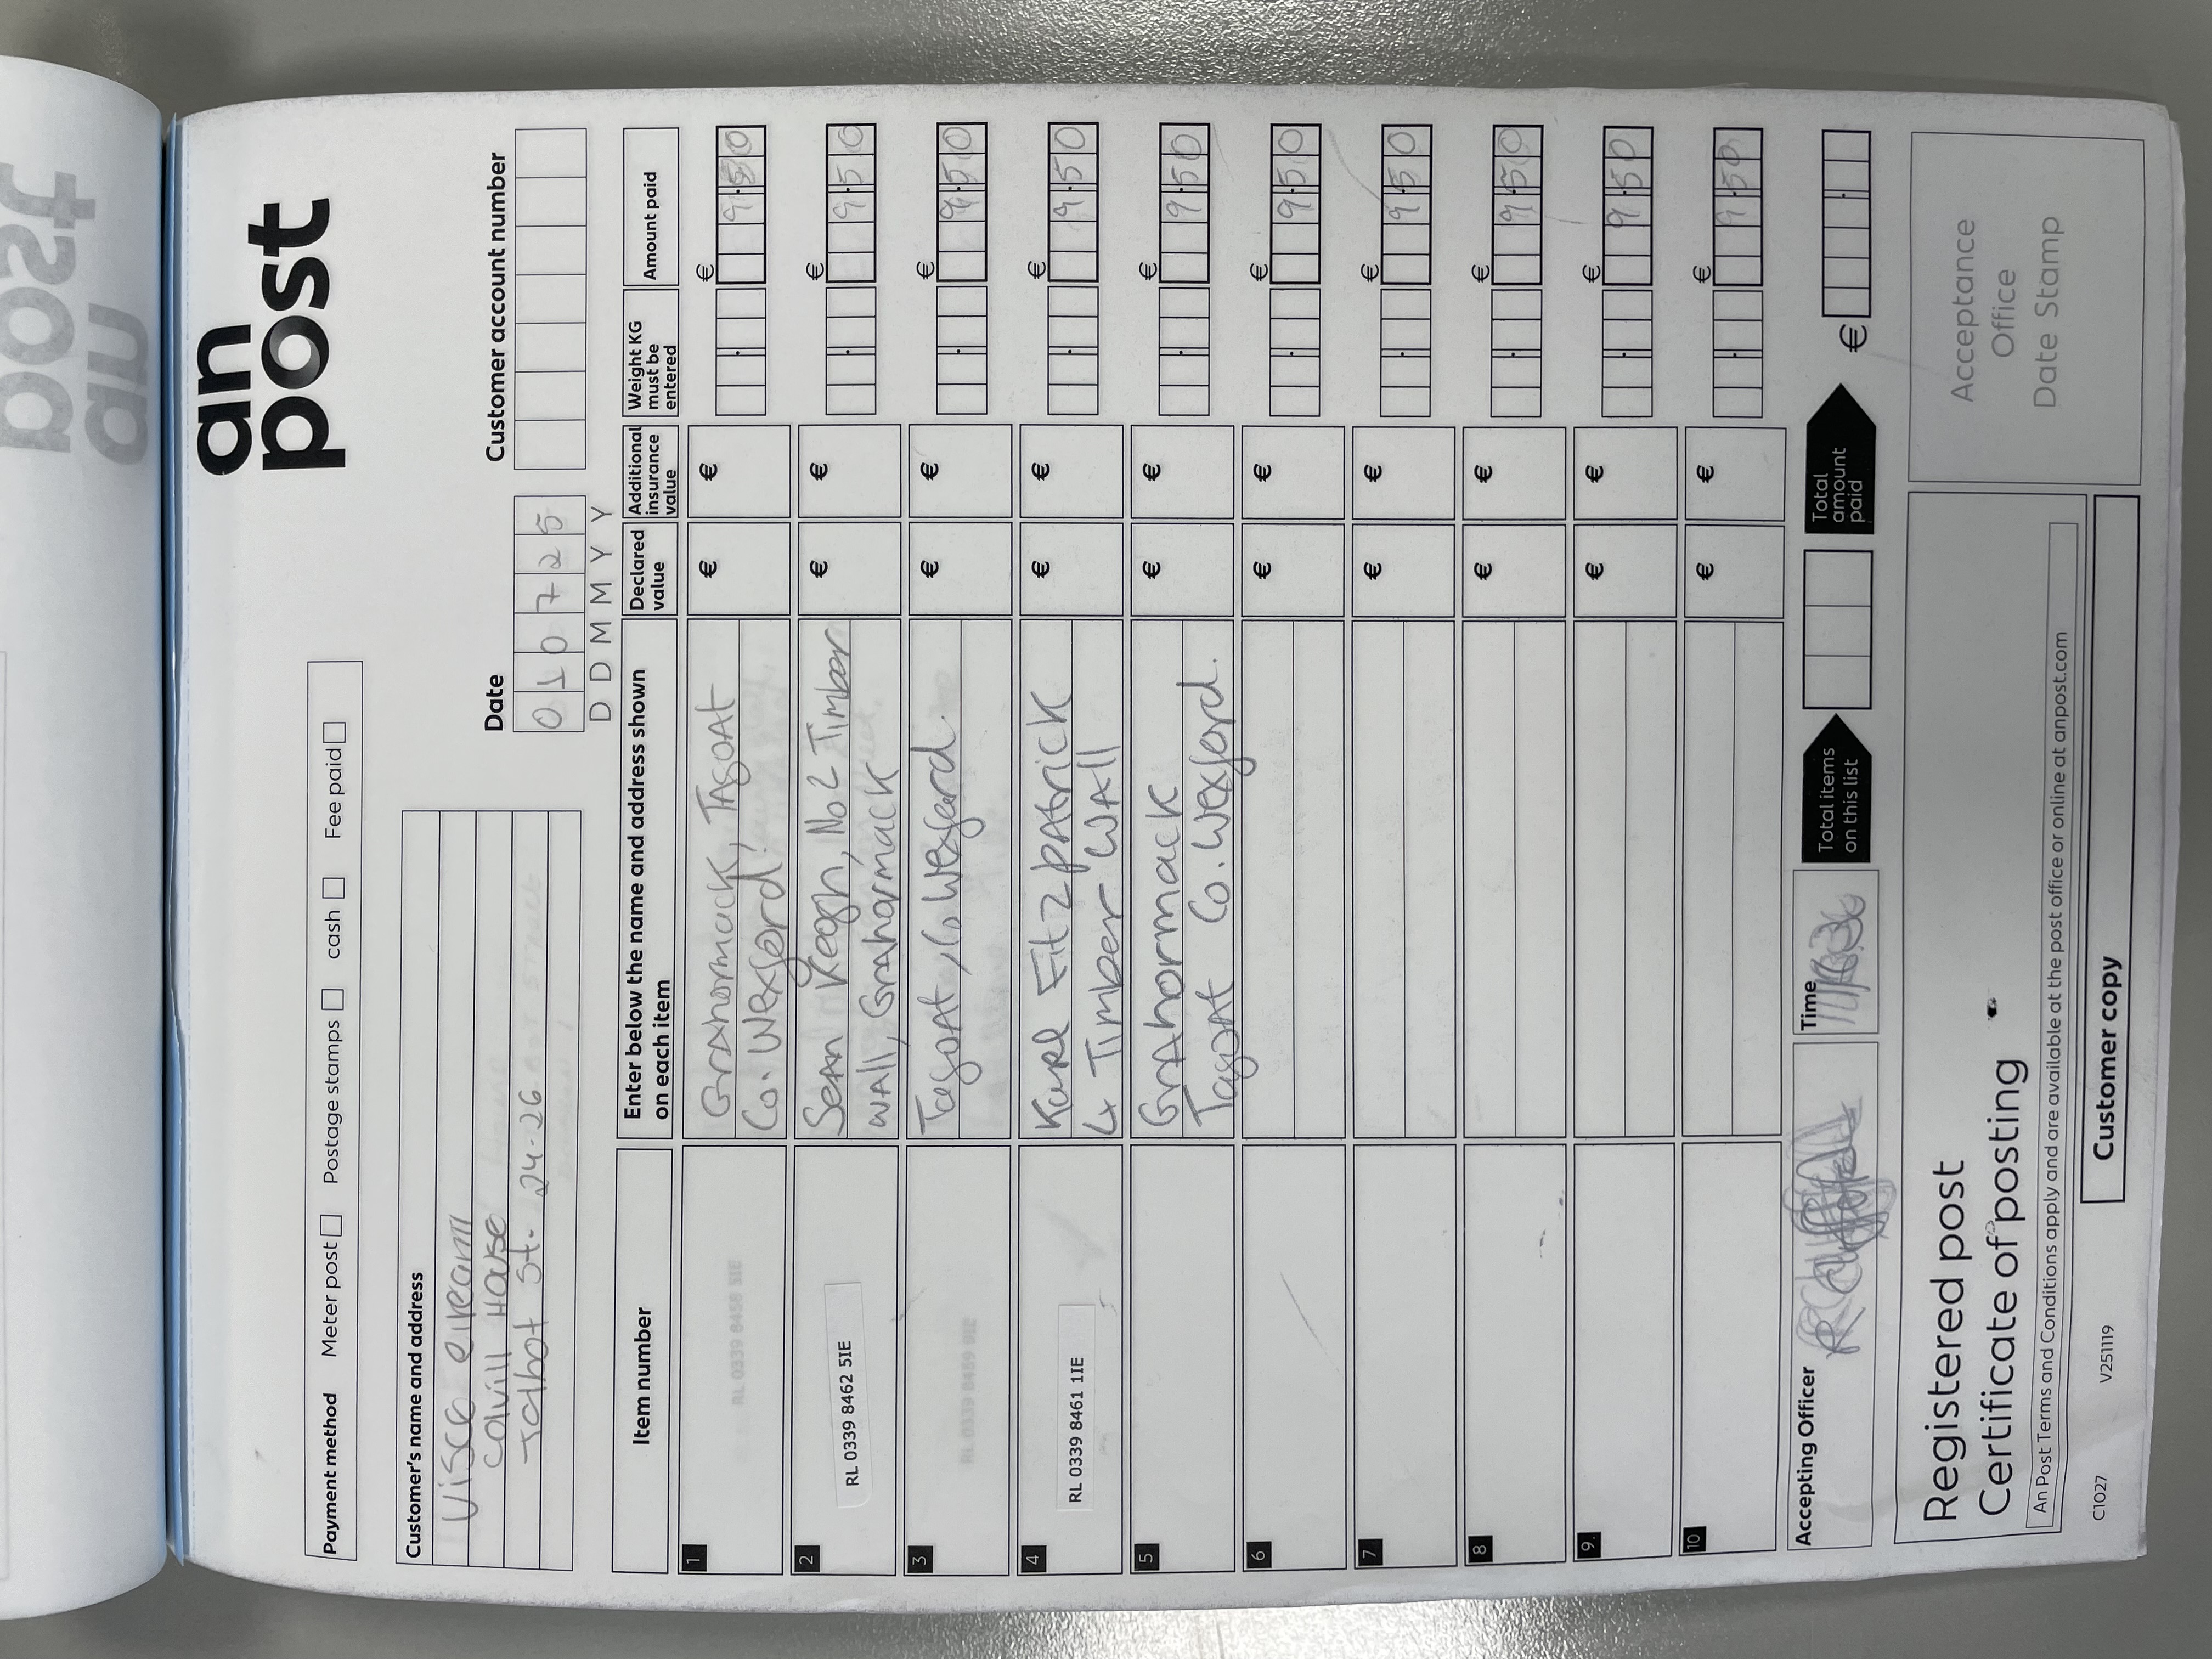 an
post
Payment method Meter post Postage stamps cash Fee paid
Customer's name and address
Uisce eireann
Colvill House
Talbot St. 24-26
Date
0 1 0 7 2 5
D D M M Y Y
Customer account number
Item number
Enter below the name and address shown
on each item
Declared
value
Additional
insurance
value
Weight KG
must be
entered
Amount paid
1 RL 0339 8458 5IE Grahormack, Tagoat € € € 9.50
Co. Wexford.
2 RL 0339 8462 5IE Sean Keogh, No 2 Timber € € € 9.50
Wall, Grahormack
3 RL 0339 8459 9IE Tagoat, Co Wexford. € € € 9.50
4 RL 0339 8461 1IE Karl Fitzpatrick € € € 9.50
4 Timber Wall
5 Grahormack € € € 9.50
Tagoat Co. Wexford.
6 € € € 9.50
7 € € € 9.50
8 € € € 9.50
9. € € € 9.50
10 € € € 9.50
Accepting Officer
Time
Total items
on this list
Total
amount
paid
€
Registered post
Certificate of posting
Acceptance
Office
Date Stamp
An Post Terms and Conditions apply and are available at the post office or online at anpost.com
C1027 V251119
Customer copy